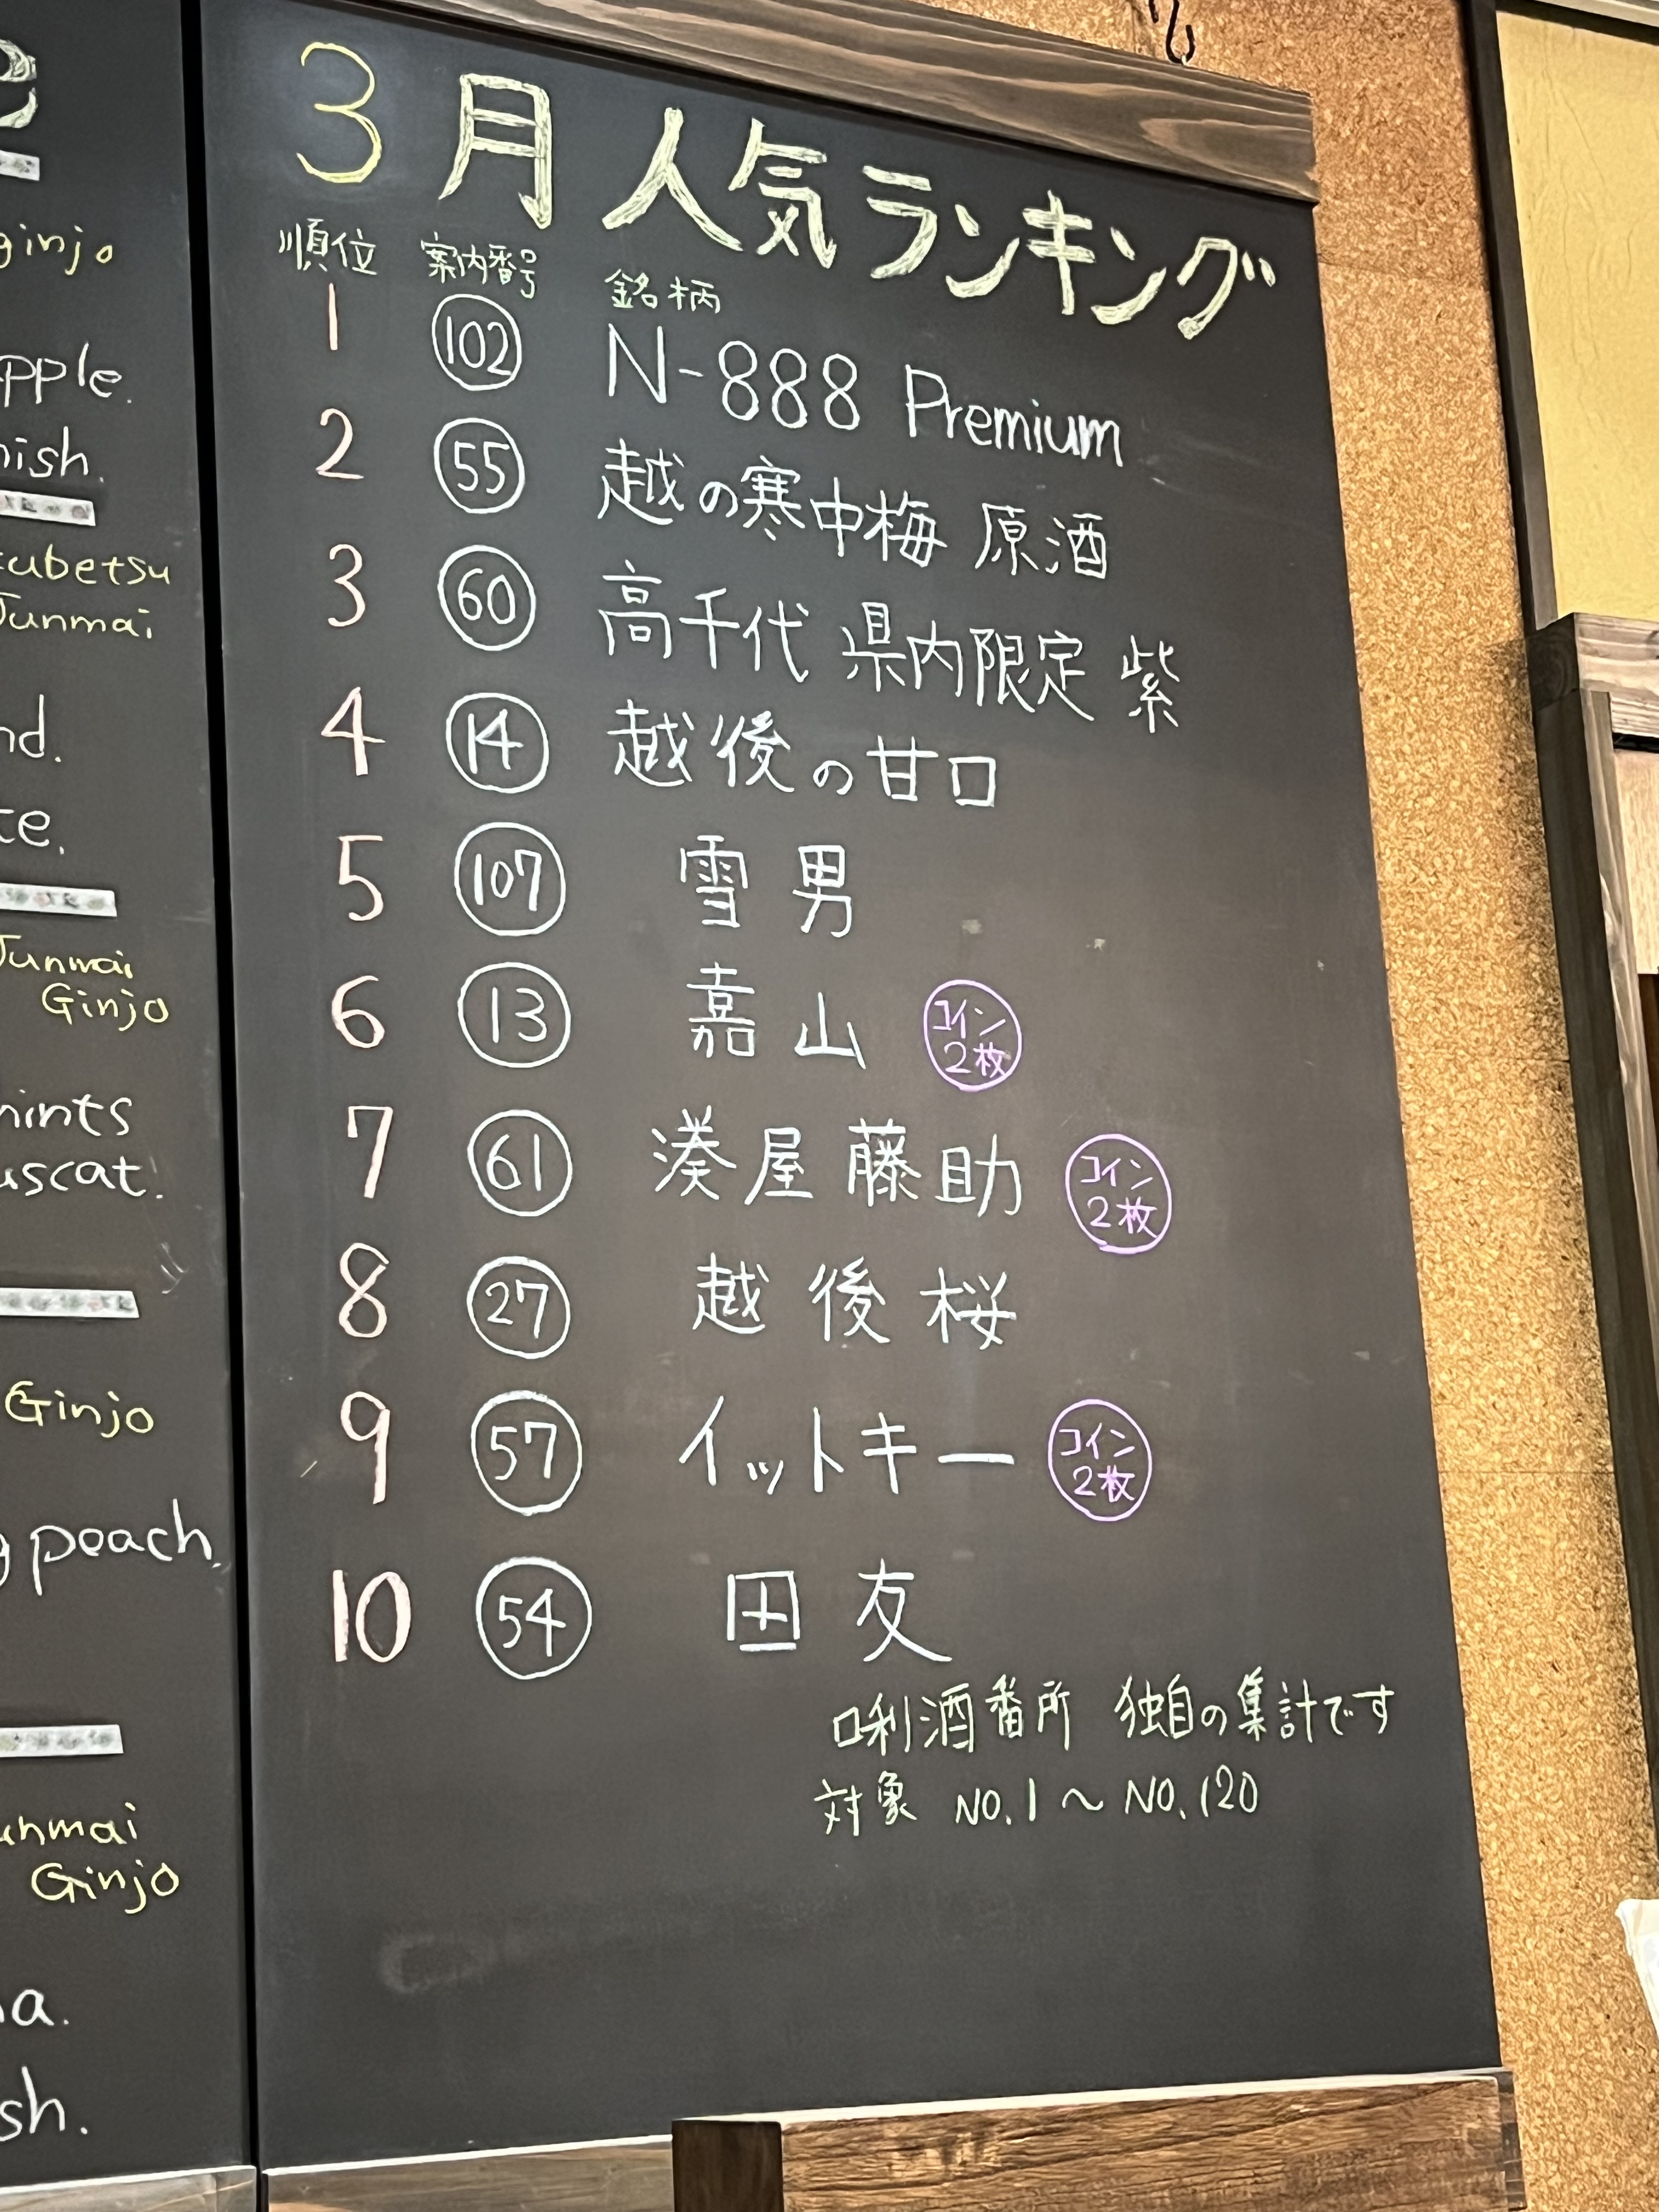 3月 人気ランキング
順位 案内番号 銘柄
1 102 N-888 Premium
2 55 越の寒中梅 原酒
3 60 高千代 県内限定 紫
4 14 越後の甘口
5 107 雪男
6 13 嘉山 コイン2枚
7 61 湊屋藤助 コイン2枚
8 27 越後桜
9 57 イットキー コイン2枚
10 54 田友
唎酒番所 独自の集計です
対象 NO.1〜NO.120
ginjo
pple.
nish.
kubetsu
Junmai
nd.
te.
Junmai
Ginjo
hints
uscat.
Ginjo
g peach.
unmai
Ginjo
na.
sh.